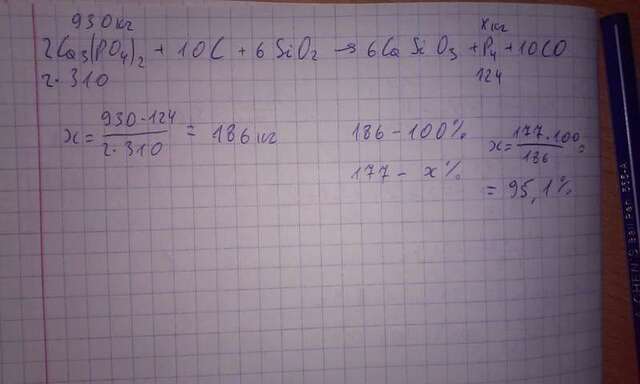 930кг
xкг
2Ca₃(PO₄)₂ + 10C + 6SiO₂ → 6CaSiO₃ + P₄ + 10CO
2·310
124
x = 930·124 / 2·310 = 186 кг
186 – 100%
177 – x%
x = 177·100 / 186 =
= 95,1%